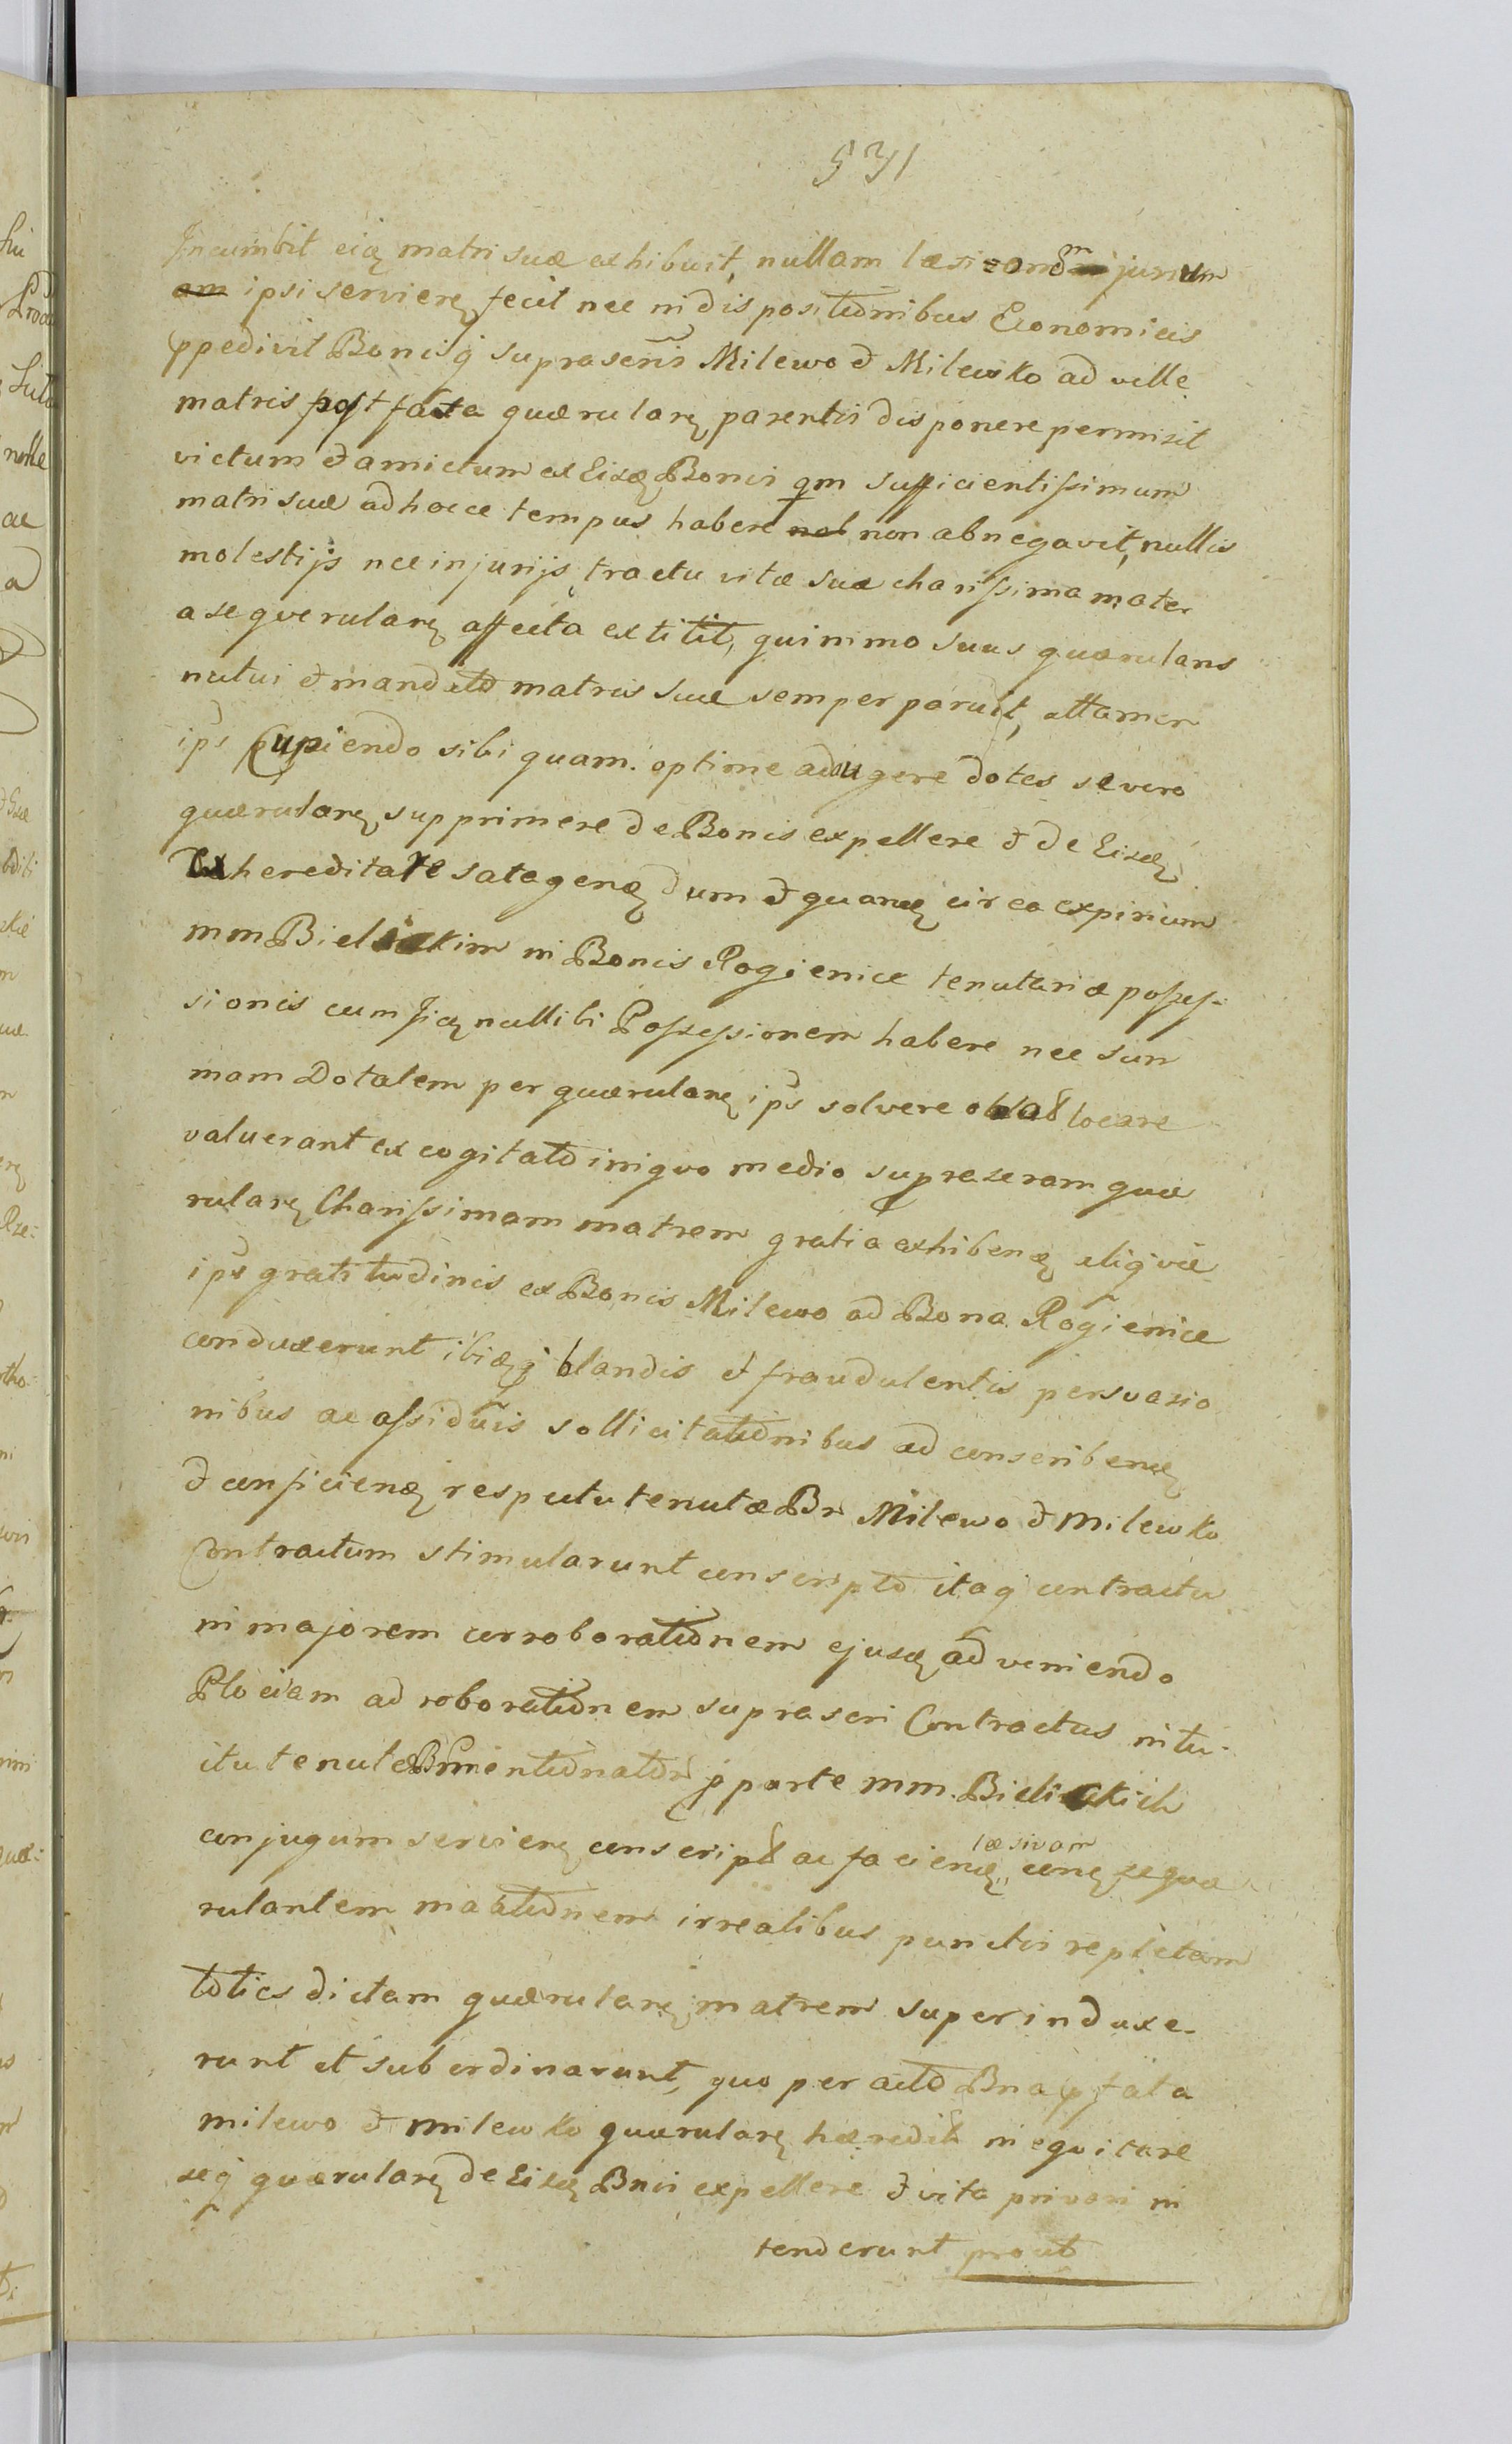 531
Incumbit eidę matri suæ exhibuit, nullam læsionem jurium
ipsi servienę fecit nec in dispositionibus Economicis
ppedivit Bonisq suprascris Milewo & Milewko ad velle
matris post fata quærulanę parentis disponere permisit
victum & amictum ex Eisdę Bonis qm sufficientissimum
matri suæ ad hocce tempus habere non abnegavit, nullis
molestijs nec injurijs tractu vitæ suæ charissima mater
a se qverulanę affecta extitit, quinimo suus quærulans
nutui & mandato matris suæ semper paruit, attamen
ips Cupiendo sibi quam optime adaugere dotes se vero
quærulanę supprimere de Bonis expellere & de Eisdę
Exhereditare satagenę dum & quandę circa expirium
mm Bielickim in Bonis Rogienice tenutariæ posses-
sionis cum Jidę nullibi Possessionem habere nec sum
mam Dotalem per quærulanę ips solvere locare
valuerant excogitato iniquo medio suprascram quæ
rulanę Charissimam matrem gratia exhibenę
ips gratitudinis ex Bonis Milewo ad Bona Rogienice
conduxerunt ibidęq blandis et fraudulentis persvasio
nibus ac assiduis sollicitationibus ad conscribendę
& conficiendę respectu tenutæ Br Milewo & Milewko
Contractum stimularunt conscripto itaq contractu
in majorem corroborationem ejusdę adveniendo
Plociam ad roborationem suprascri Contractus intu-
itu tenutæ Br mentionator p parte mm. Bielickich
conjugum servienę conscript ac faciendę, læsivam conę se quæ
rulantem manationem irrealibus punctis repletam
toties dictam quærulanę matrem superinduxe-
runt et subordinarunt, quo peracto Bna pfata
Milewo & Milewko quærulanę hæredit inequitare
seq quærulanę de Eisdę Bnis expellere & vita privari in
tenderunt prout